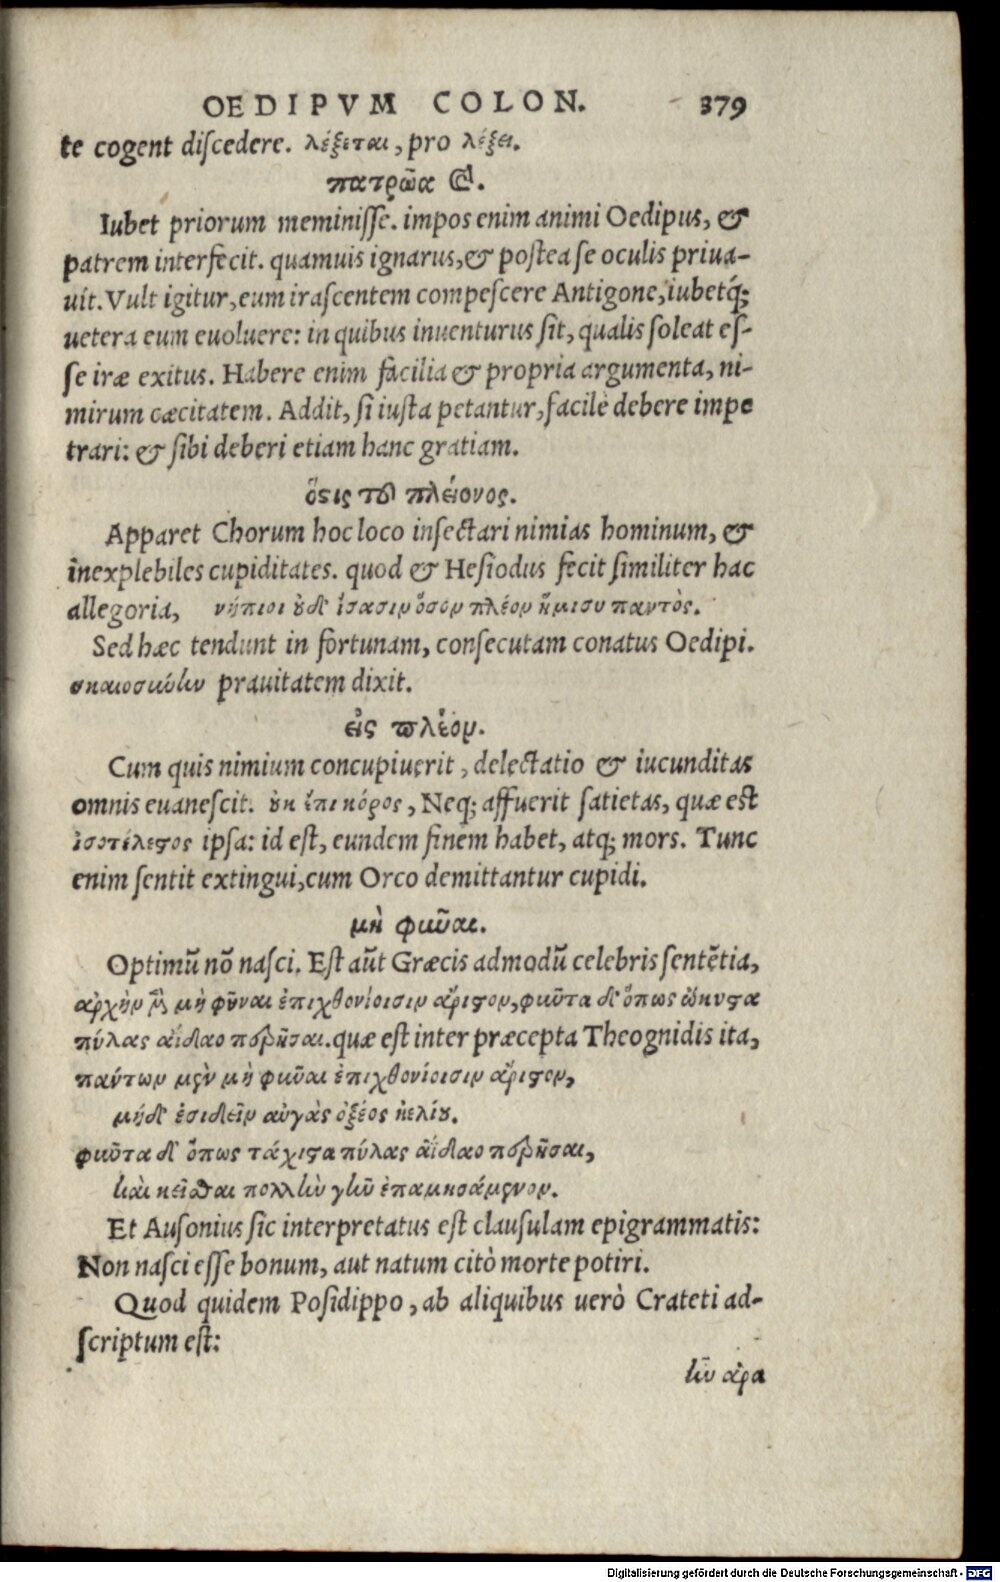 OEDIPVM COLON. 379
te cogent diſcedere. λέξεται, pro λέξει.
πατρῶα &.
Iubet priorum meminiſſe. impos enim animi Oedipus, &
patrem interfecit. quamuis ignarus, & poſtea ſe oculis priua-
uit. Vult igitur, eum iraſcentem compeſcere Antigone, iubetq́;
uetera eum euoluere: in quibus inuenturus ſit, qualis ſoleat eſ-
ſe iræ exitus. Habere enim facilia & propria argumenta, ni-
mirum cæcitatem. Addit, ſi iuſta petantur, facilè debere impe
trari: & ſibi deberi etiam hanc gratiam.
ὅςις τοῦ πλέονος.
Apparet Chorum hoc loco inſectari nimias hominum, &
inexplebiles cupiditates. quod & Heſiodus fecit ſimiliter hac
allegoria, νήπιοι ȣδὲ ἴσασιν ὅσον πλέον ἥμισυ παντὸς.
Sed hæc tendunt in fortunam, conſecutam conatus Oedipi.
σκαιοσύνην prauitatem dixit.
εἰς πλέον.
Cum quis nimium concupiuerit, delectatio & iucunditas
omnis euaneſcit. ȣκ ἔπι κόρος, Neq; affuerit ſatietas, quæ eſt
ἰσοτέλεςος ipſa: id eſt, eundem finem habet, atq; mors. Tunc
enim ſentit extingui, cum Orco demittantur cupidi.
μὴ φῦναι.
Optimũ nõ naſci. Eſt aũt Græcis admodũ celebris ſentẽtia,
ἀρχὴν μὲν μὴ φῦναι ἐπιχθονίοισιν ἄριςον, φῦντα δ' ὅπως ὤκιςα
πύλας ἀΐδαο περῆσαι. quæ eſt inter præcepta Theognidis ita,
πάντων μὲν μὴ φῦναι ἐπιχθονίοισιν ἄριςον,
μήδ' ἐσιδεῖν αὐγὰς ὀξέος ἠελίȣ.
φῦντα δ' ὅπως τάχιςα πύλας ἀΐδαο περῆσαι,
καὶ κεῖσθαι πολλὴν γῆν ἐπαμησάμενον.
Et Auſonius ſic interpretatus eſt clauſulam epigrammatis:
Non naſci eſſe bonum, aut natum citò morte potiri.
Quod quidem Poſidippo, ab aliquibus uerò Crateti ad-
ſcriptum eſt:
ἦν ἄρα
Digitalisierung gefördert durch die Deutsche Forschungsgemeinschaft - DFG